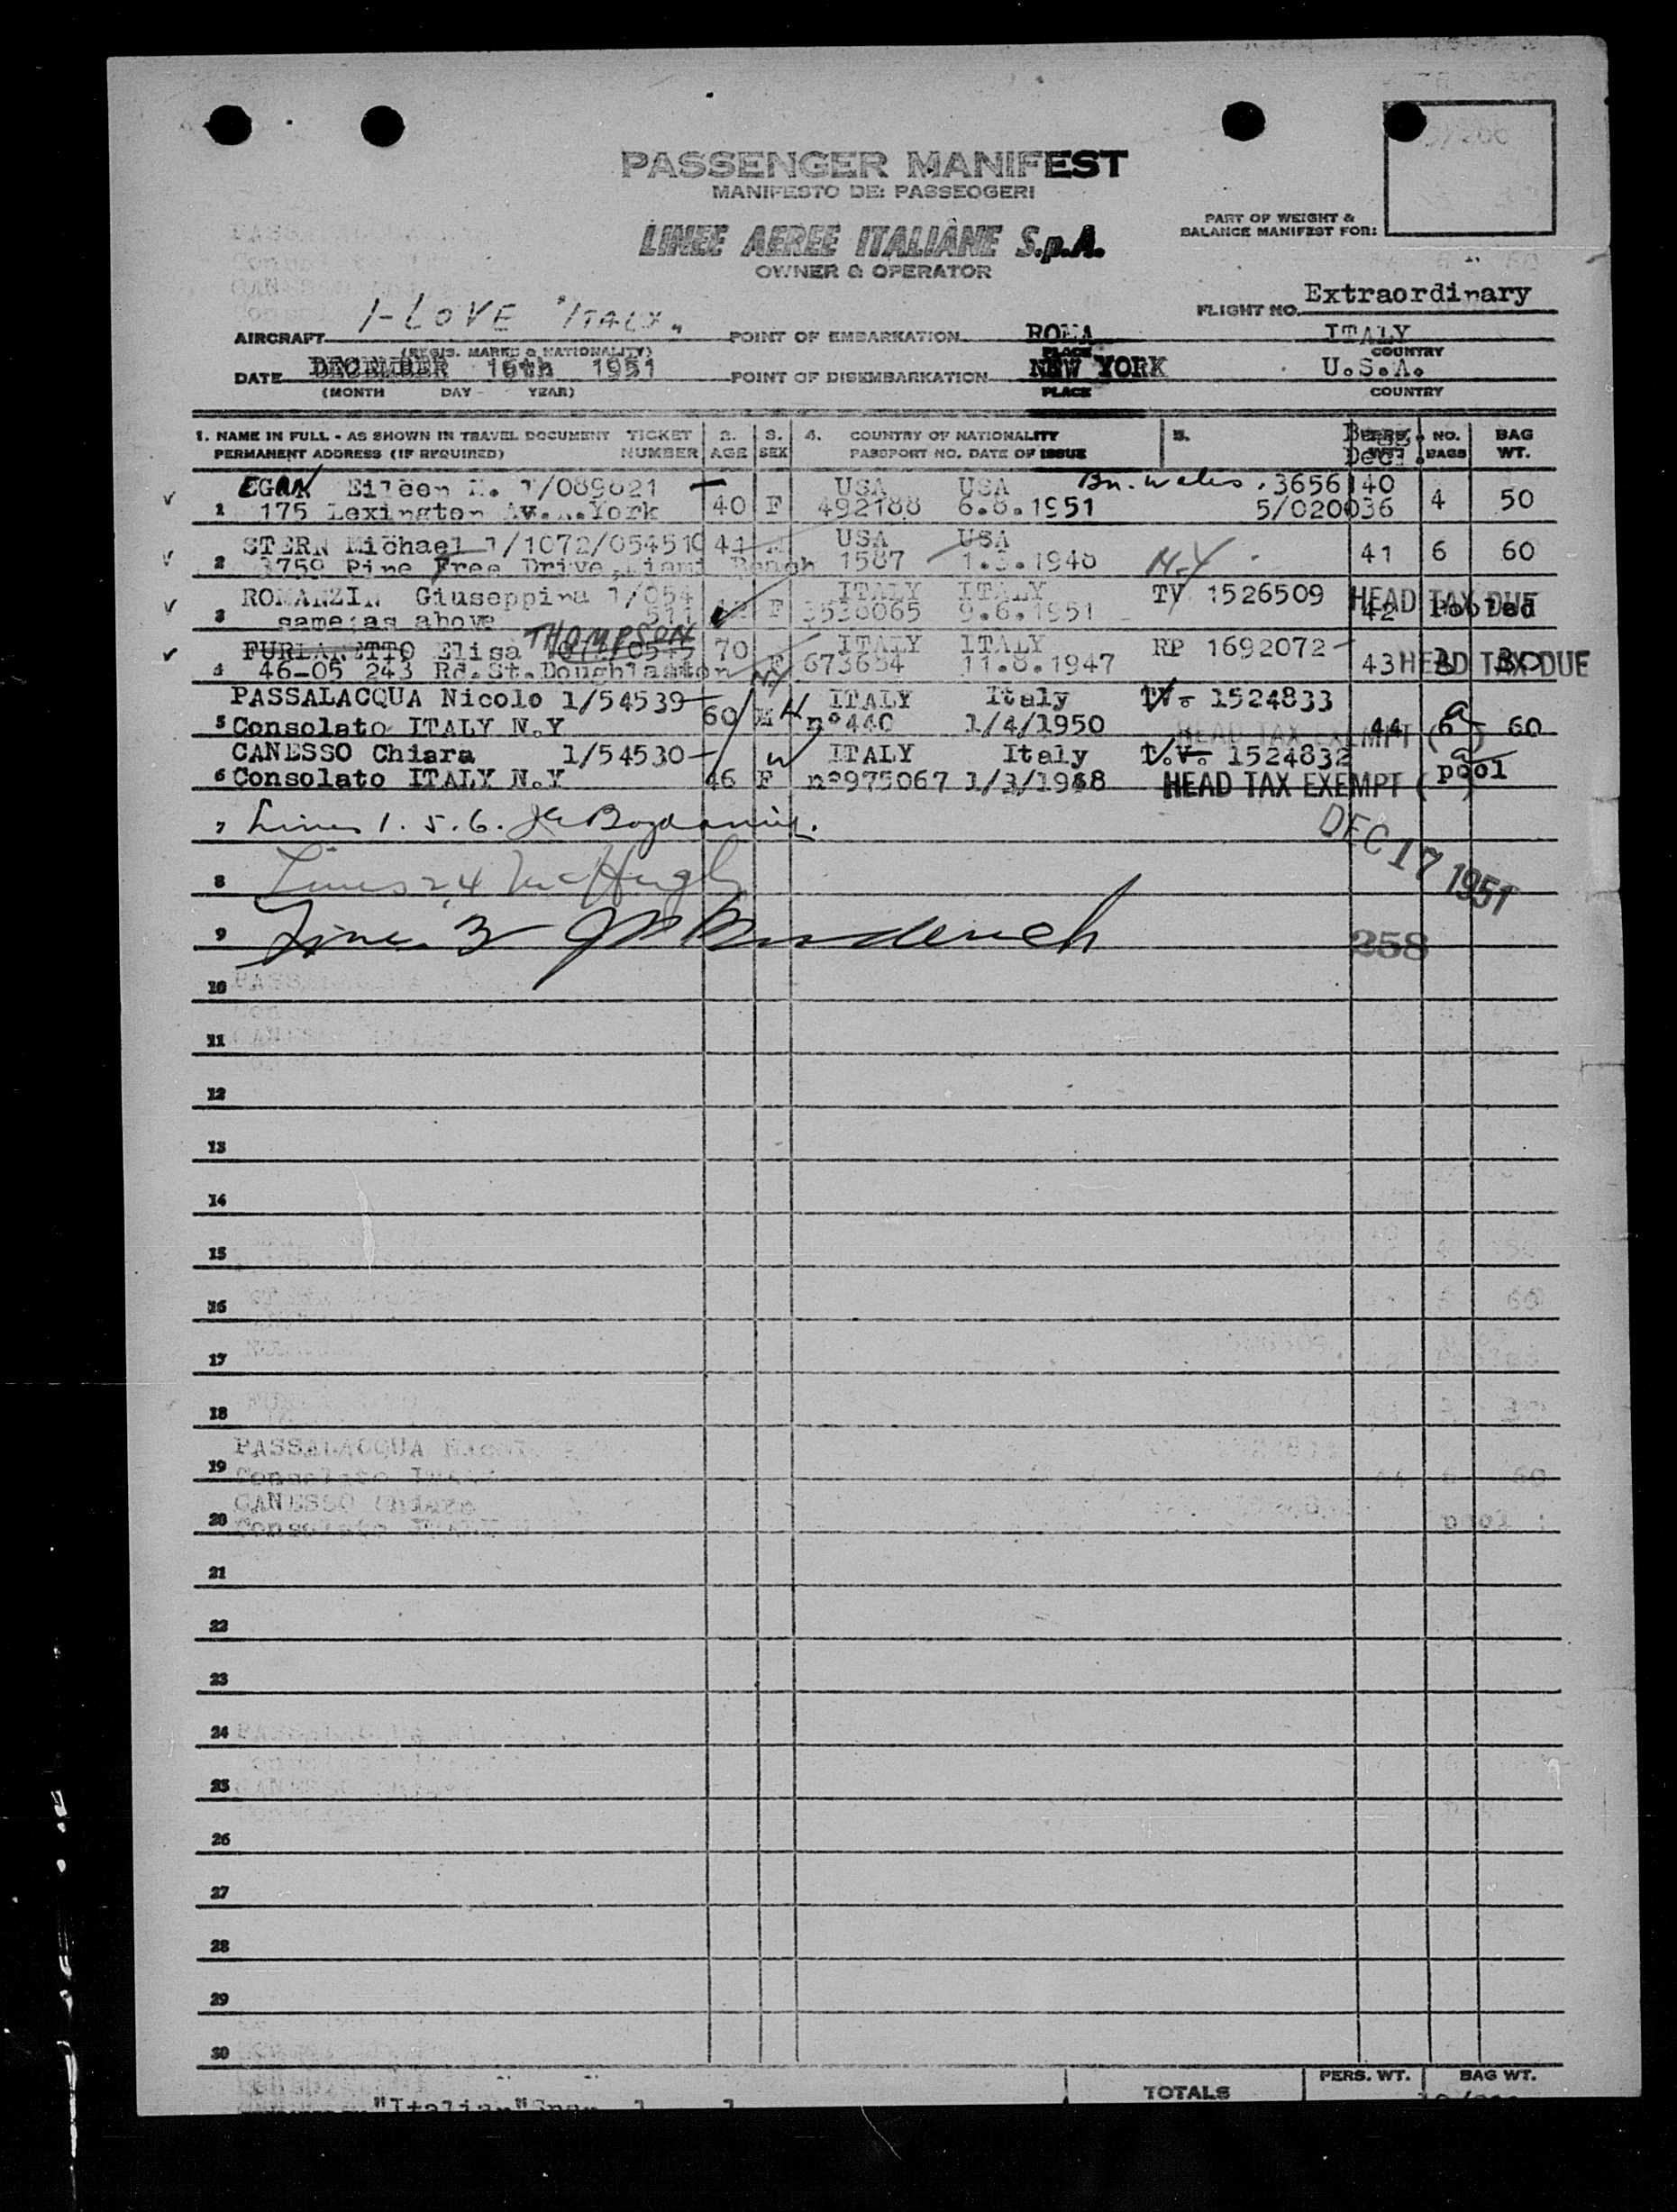 PASSENGER MANIFEST
MANIFESTO DEI PASSEOGERI
LINEE AEREE ITALIANE S.p.A.
OWNER & OPERATOR
PART OF WEIGHT &
BALANCE MANIFEST FOR:
AIRCRAFT I-LOVE "ITALY" POINT OF EMBARKATION ROMA ITALY FLIGHT NO. Extraordinary
(REGIS. MARKS & NATIONALITY) PLACE COUNTRY
DATE DECEMBER 16th 1951 POINT OF DISEMBARKATION NEW YORK U.S.A.
(MONTH DAY YEAR) PLACE COUNTRY
1. NAME IN FULL - AS SHOWN IN TRAVEL DOCUMENT TICKET 2. 3. 4. COUNTRY OF NATIONALITY 5. NO. BAG
PERMANENT ADDRESS (IF REQUIRED) NUMBER AGE SEX PASSPORT NO. DATE OF ISSUE Decl. BAGS WT.
EGAN Eileen M. 1/089621 USA USA 3656 140
1 175 Lexington Av.N.York 40 F 492188 6.8.1951 5/020036 4 50
STERN Michael 1/1072/054510 44 M USA USA N.Y.
2 3759 Pine Free Drive, Miami Beach 1587 1.3.1948 41 6 60
ROMANZIN Giuseppina 1/054 ITALY ITALY TV 1526509 HEAD TAX DUE
3 same as above 511 F 3530065 9.6.1951 42 Pooled
FURLANETTO Elisa THOMPSON 70 ITALY ITALY RP 1692072
4 46-05 243 Rd.St.Doughlaston NY F 673654 11.8.1947 43 HEAD TAX DUE
PASSALACQUA Nicolo 1/54539 ITALY Italy TV. 1524833
5 Consolato ITALY N.Y 60 M n°440 1/4/1950 HEAD TAX EXEMPT ( a ) 44 6 60
CANESSO Chiara 1/54530 W ITALY Italy T.V. 1524832
6 Consolato ITALY N.Y 46 F n°975067 1/3/1948 HEAD TAX EXEMPT ( a ) pool
7 Lines 1. 5. 6.
DEC 17 1951
8 Lines 2 4 McHugh
9 Line 3
258
10
11
12
13
14
15
16
17
18
19
20
21
22
23
24
25
26
27
28
29
30
TOTALS PERS. WT. BAG WT.